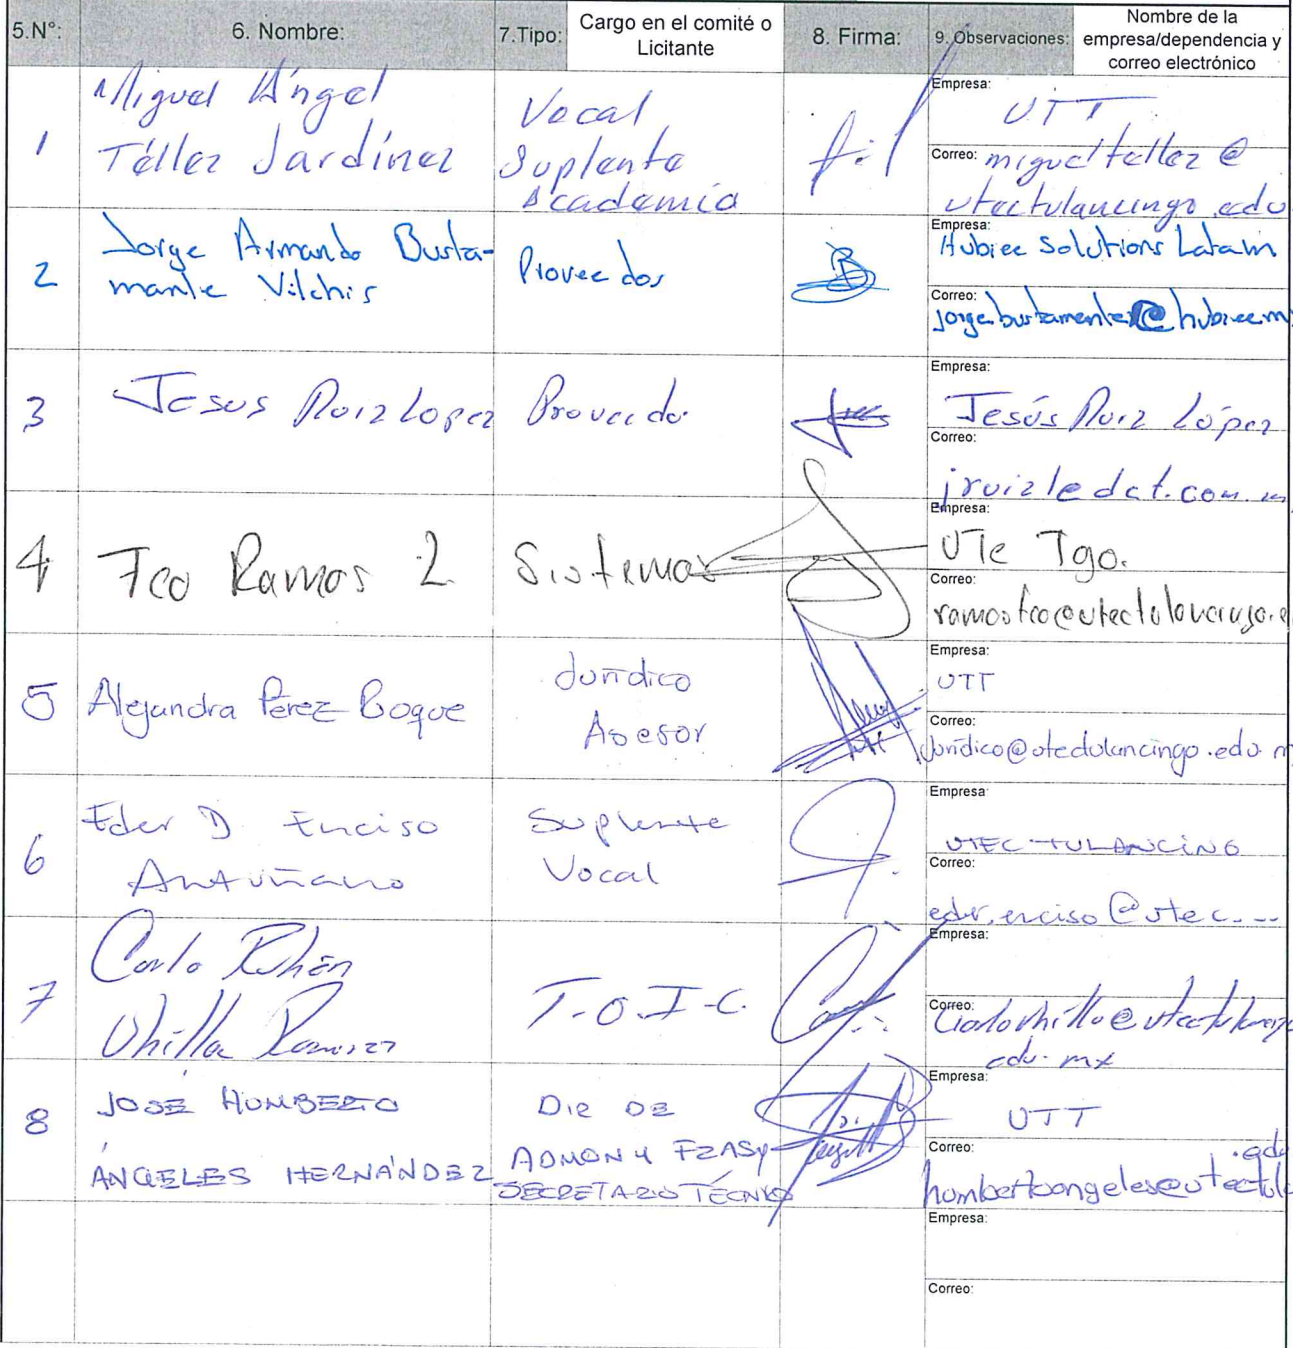 5.N°: 6. Nombre: 7.Tipo: Cargo en el comité o Licitante 8. Firma: 9. Observaciones: Nombre de la empresa/dependencia y correo electrónico
1 Miguel Ángel
Téllez Jardínez
Vocal
Suplente
Academia
Empresa: UTT
Correo: migueltellez@
utectulancingo.edu
2 Jorge Armando Busta-
mante Vilchis
Proveedor
Empresa: Hubiee Solutions Latam
Correo: jorge.bustamante@hubiee.m
3 Jesus Ruiz Lopez
Proveedo
Empresa: Jesús Ruiz López
Correo: jruizledct.com.m
4 Fco Ramos
Sistemas
Empresa: UTec Tgo.
Correo: ramosfco@utectulancingo.e
5 Alejandra Pérez Roque
Jurídico
Asesor
Empresa: UTT
Correo: Juridico@utectulancingo.edu.m
6 Eder D. Enciso
Antuñano
Suplente
Vocal
Empresa: UTEC-TULANCINGO
Correo: eder.enciso@utec...
7 Carlo Rubén
Ubilla Ramírez
T.O.I.C.
Empresa:
Correo:
edu.mx
8 JOSÉ HUMBERTO
ÁNGELES HERNÁNDEZ
DIR DE
ADMON Y FZAS y
SECRETARIO TÉCNICO
Empresa: UTT
Correo: .edu
humbertoangeles@utectul
Empresa:
Correo: